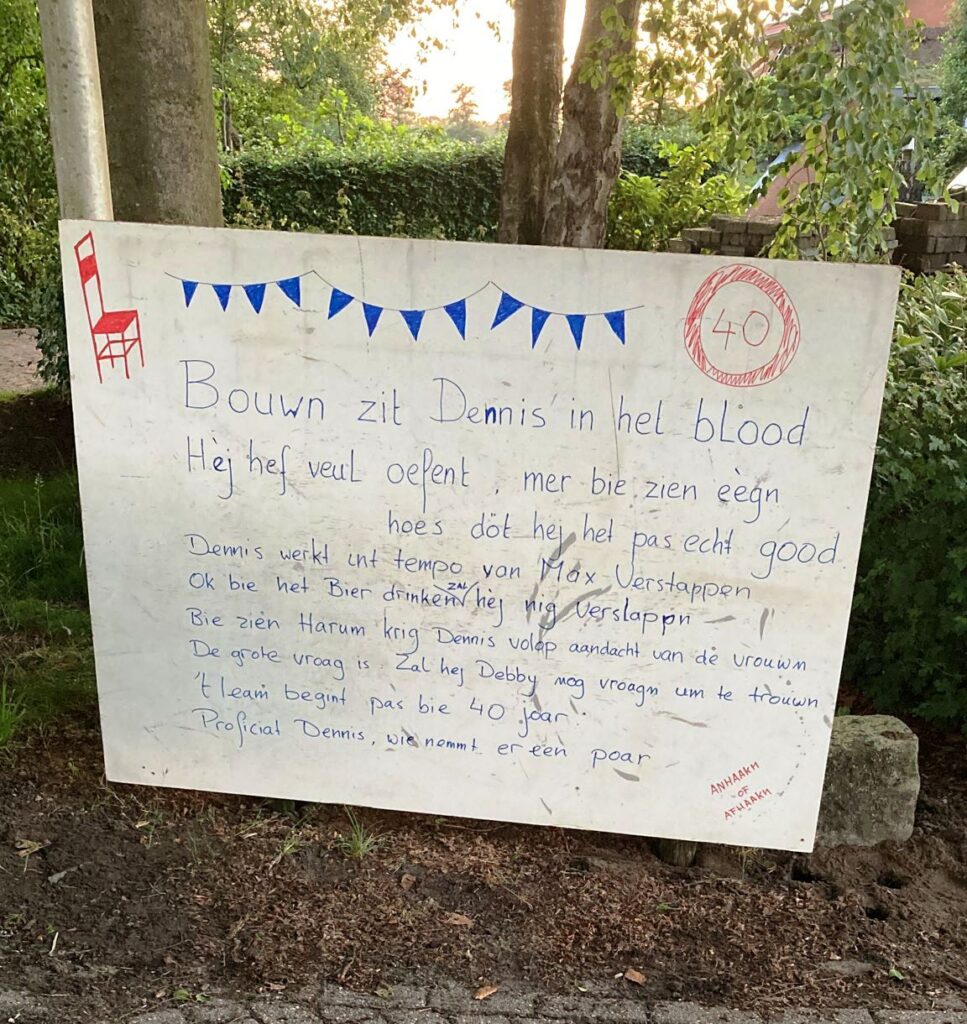 40
Bouwn zit Dennis in het blood
Hej hef veul oefent, mer bie zien èègn
hoes döt hej het pas echt good.
Dennis werkt int tempo van Max Verstappen
Ok bie het Bier drinken ZAL hej nig verslappn
Bie zien Harum krig Dennis volop aandacht van de vrouwn
De grote vroag is. Zal hej Debby nog vroagn um te trouwn
't leam begint pas bie 40 joar.
Proficiat Dennis, wie nemmt er een poar
ANHAAKN
OF
AFHAAKN